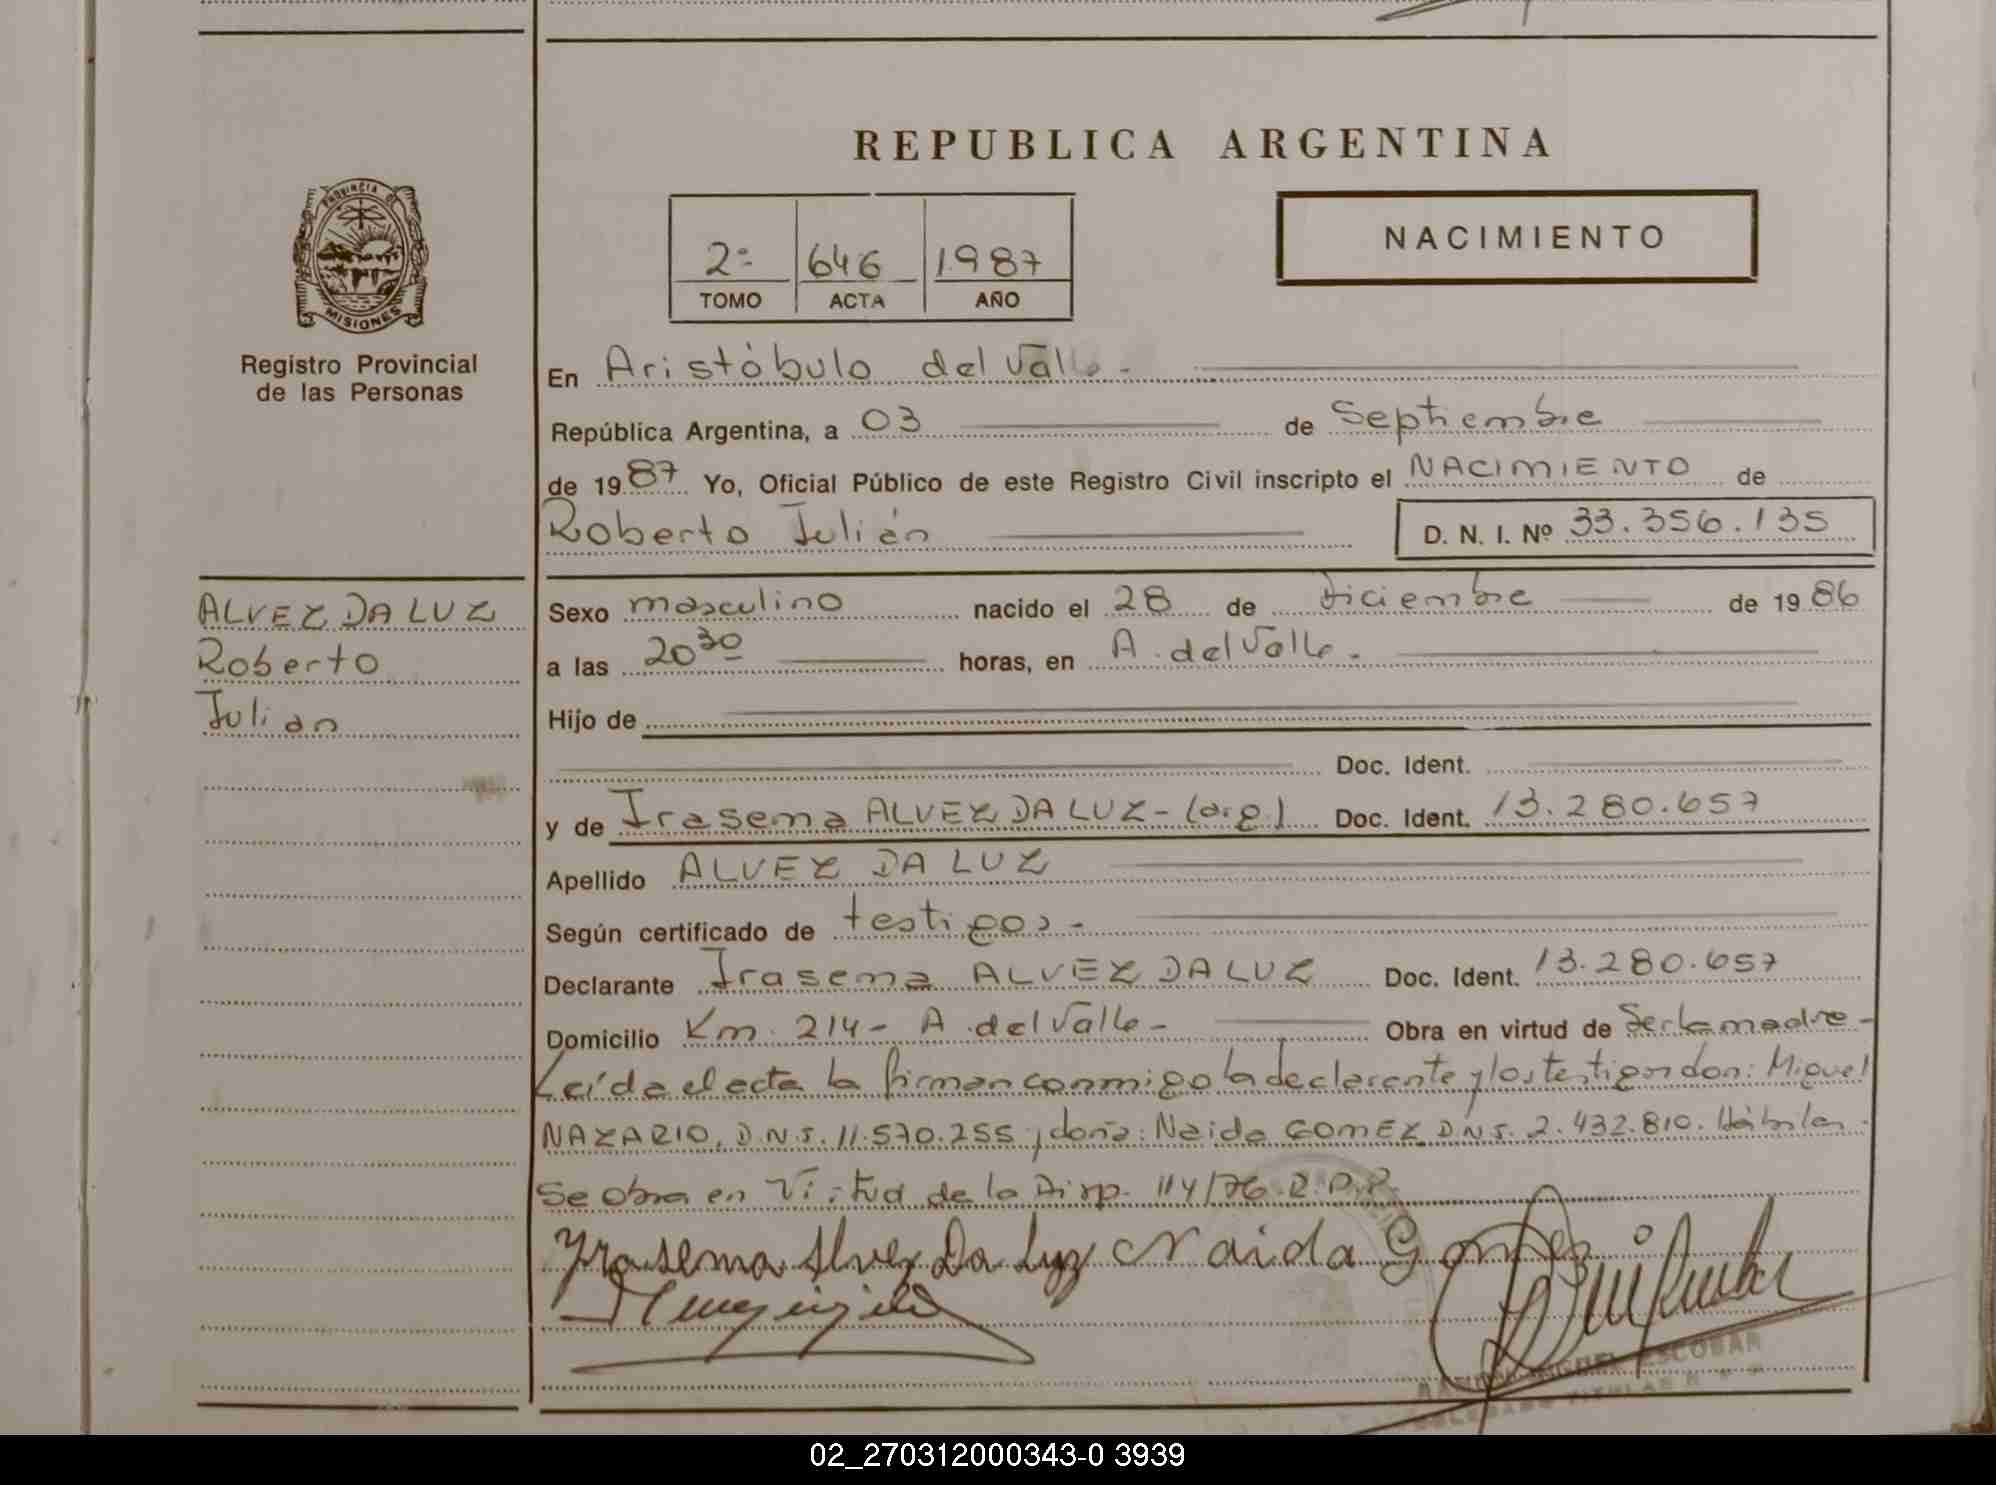 REPUBLICA ARGENTINA
PROVINCIA DE
MISIONES
Registro Provincial
de las Personas
2º 646 1987
TOMO ACTA AÑO
NACIMIENTO
En Aristóbulo del Valle.
República Argentina, a 03 de Septiembre
de 1987 Yo, Oficial Público de este Registro Civil inscripto el NACIMIENTO de
Roberto Julián D. N. I. Nº 33.356.135
ALVEZ DA LUZ
Roberto
Julian
Sexo masculino nacido el 28 de Diciembre de 1986
a las 20 30 horas, en A. del Valle.
Hijo de
Doc. Ident.
y de Irasema ALVEZ DA LUZ - (arg) Doc. Ident. 13.280.657
Apellido ALVEZ DA LUZ
Según certificado de testigos -
Declarante Irasema ALVEZ DA LUZ Doc. Ident. 13.280.657
Domicilio Km. 214 - A. del Valle - Obra en virtud de Ser la madre -
Leída el acta la firman conmigo la declarante y los testigos don: Miguel
NAZARIO, D.N.I. 11.570.255 y doña: Neida GOMEZ D.N.I. 2.432.810. Hábiles.
Se obra en Virtud de la Disp. 114/76. R.P.P.
Yrasema Alvez Da Luz Naida Gomez
MIGUEL ESCOBAR
DELEGADO TITULAR
02_270312000343-0 3939